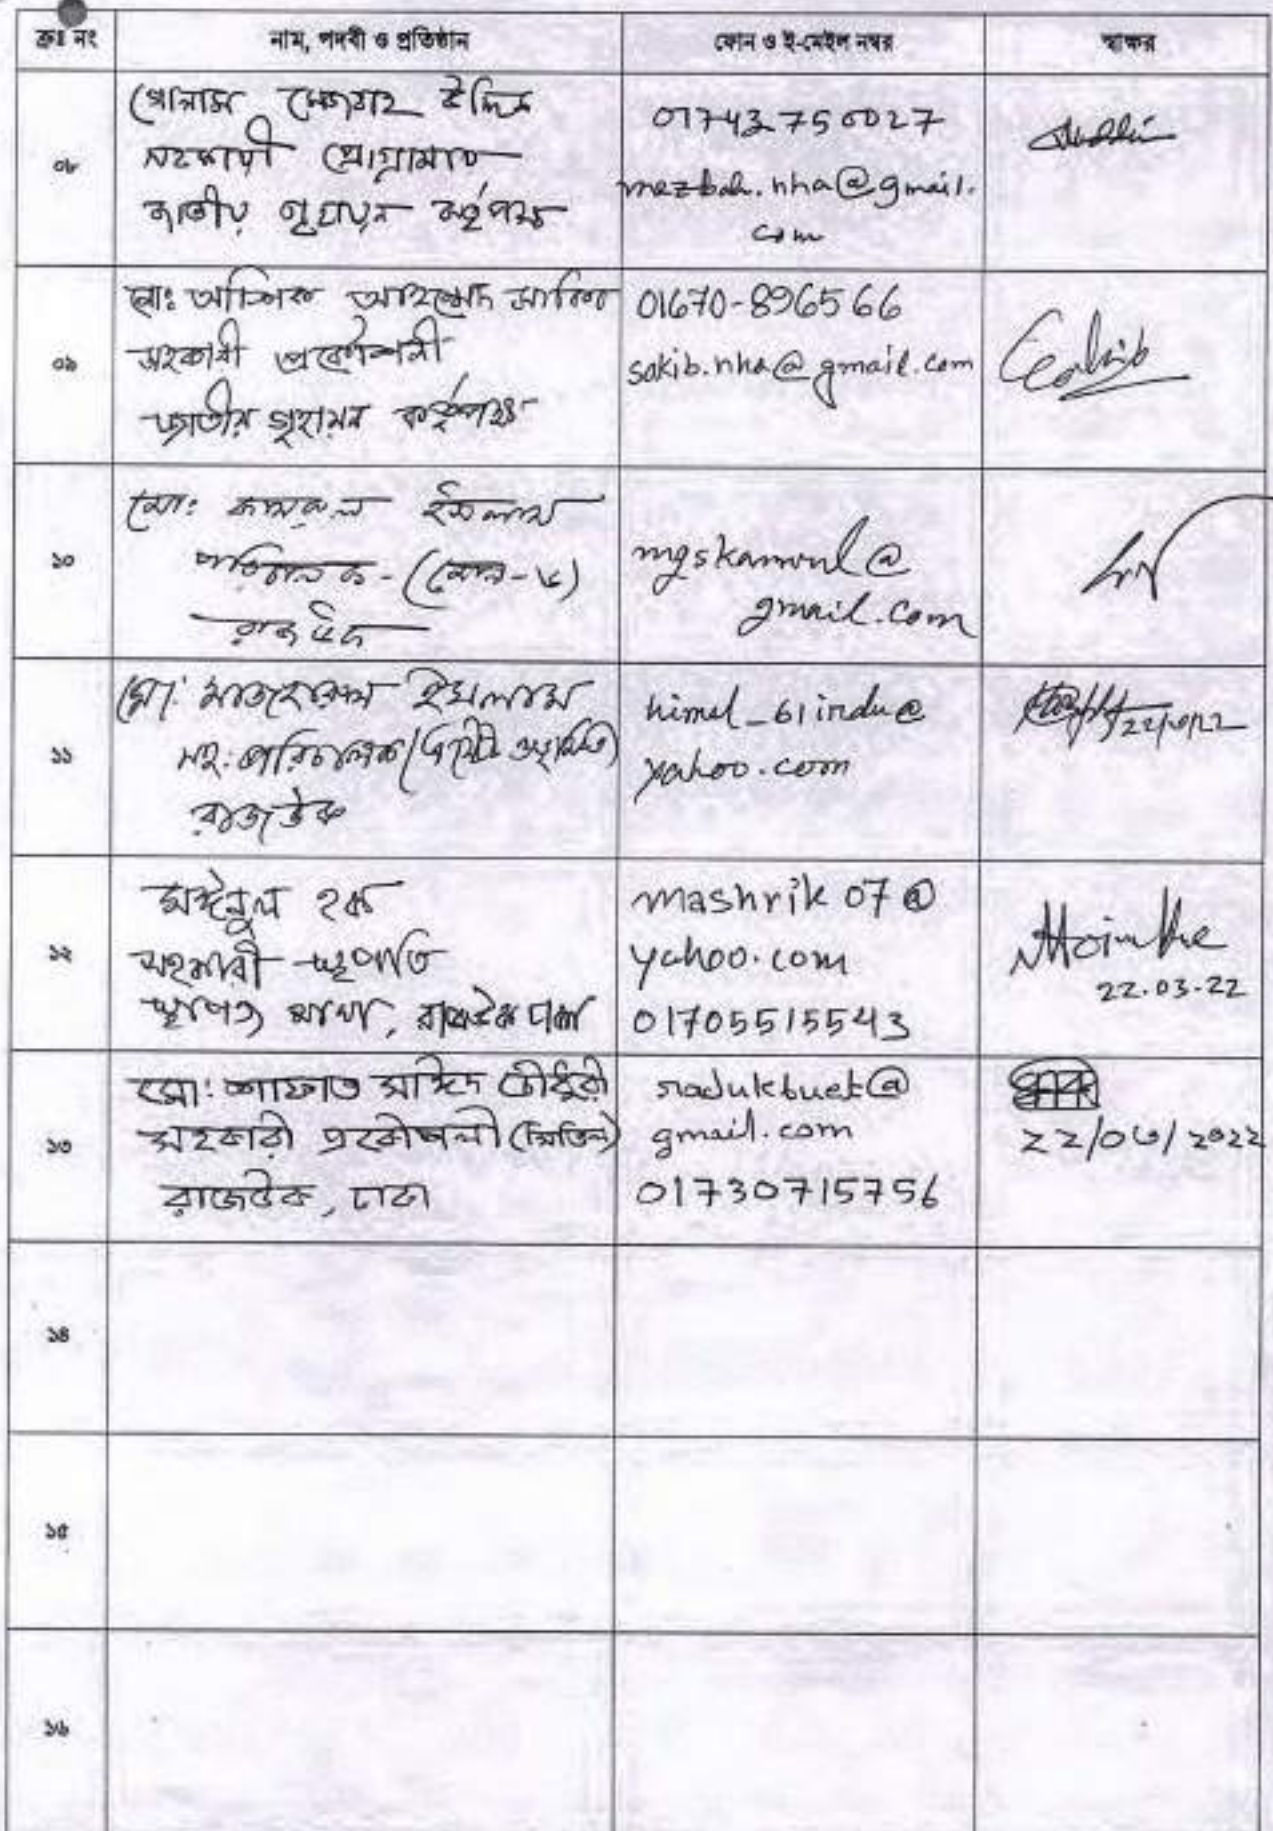 ক্রঃ নং নাম, পদবী ও প্রতিষ্ঠান ফোন ও ই-মেইল নম্বর স্বাক্ষর
০৮
গোলাম মেজবাহ উদ্দিন
সহকারী প্রোগ্রামার
জাতীয় গৃহায়ন কর্তৃপক্ষ
01743750027
mezbah.nha@gmail.
com
০৯
মোঃ আশিক আহম্মেদ সাকিব
সহকারী প্রকৌশলী
জাতীয় গৃহায়ন কর্তৃপক্ষ
01670-896566
sakib.nha@gmail.com
১০
মোঃ কামরুল ইসলাম
পরিচালক-(জোন-৬)
রাজউক
mgskamrul@
gmail.com
১১
মোঃ মাজহারুল ইসলাম
সহঃ পরিচালক
রাজউক
himel_61indu@
yahoo.com
22/3/22
১২
মঈনুল হক
সহকারী স্থপতি
স্থাপত্য শাখা, রাজউক ঢাকা
mashrik07@
yahoo.com
01705515543
22.03.22
১৩
মোঃ শাফাত সাঈদ চৌধুরী
সহকারী প্রকৌশলী (সিভিল)
রাজউক, ঢাকা
radukbuet@
gmail.com
01730715756
22/03/2022
১৪
১৫
১৬